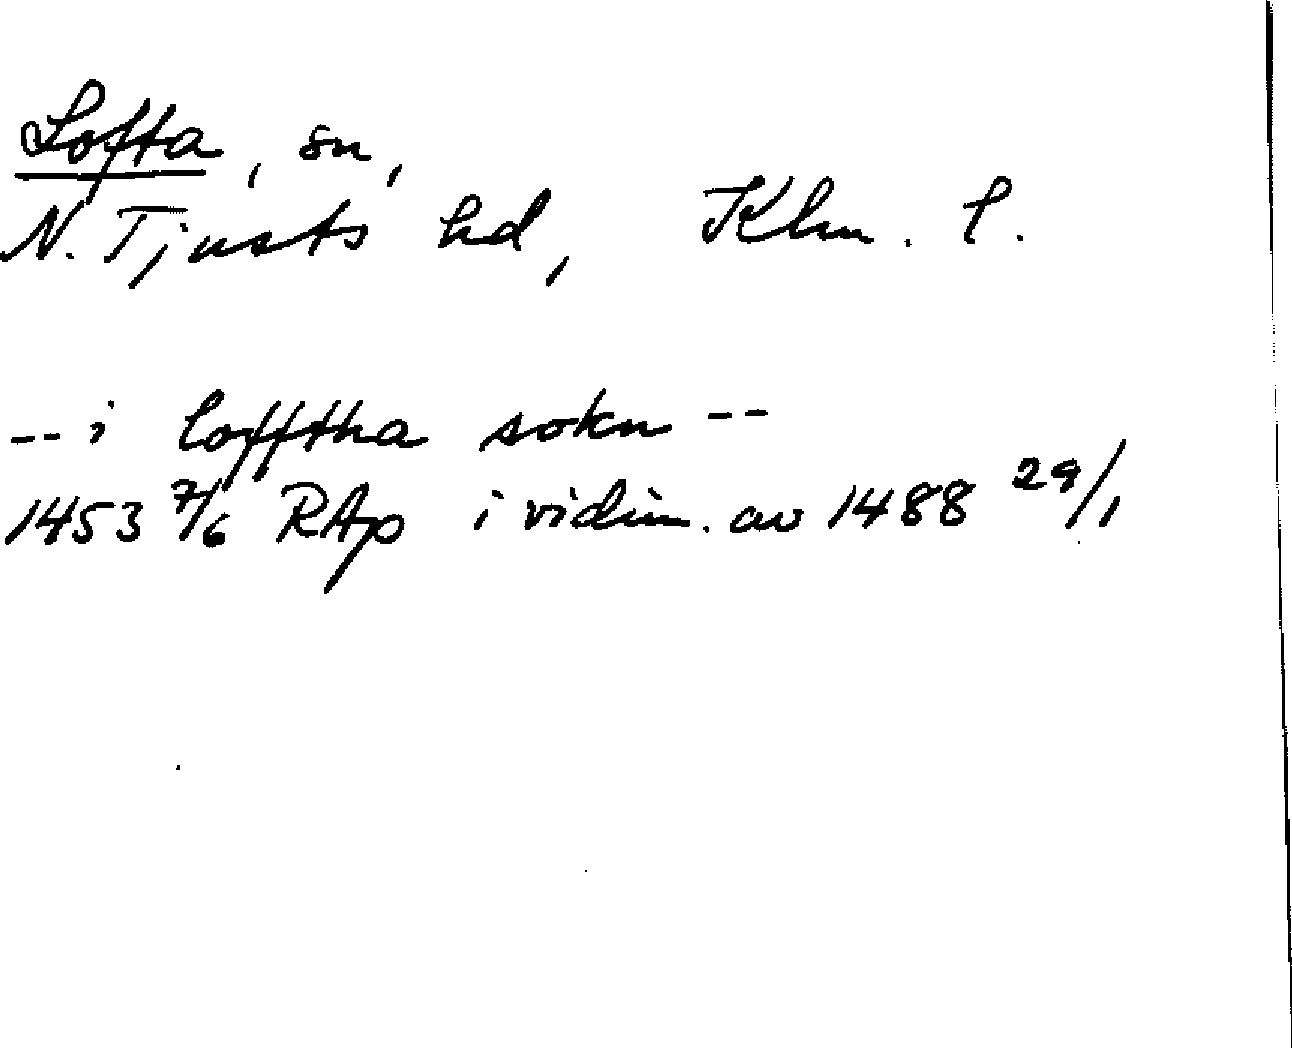 Lofta, sn,
N. Tjusts hd, Klm. l.
-- i lofftha sokn --
1453 7/6 RAp i vidim. av 1488 29/1